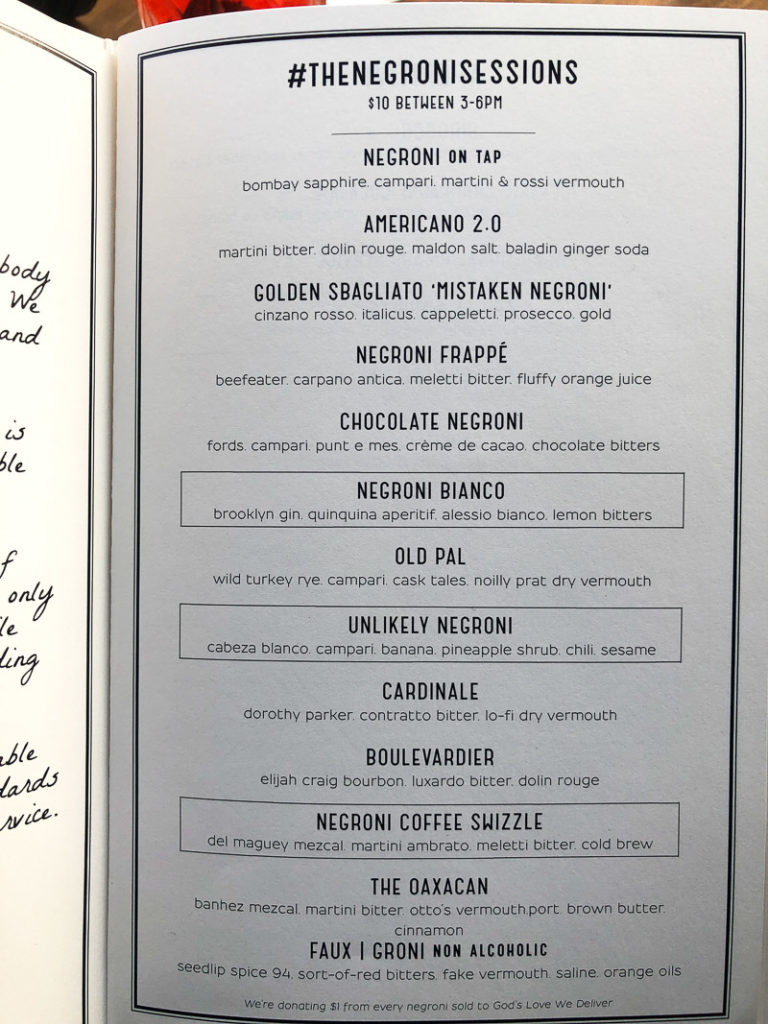 body
We
and
is
ble
f
only
le
ling
able
dards
rvice.
#THENEGRONISESSIONS
$10 BETWEEN 3-6PM
NEGRONI ON TAP
bombay sapphire. campari. martini & rossi vermouth
AMERICANO 2.0
martini bitter. dolin rouge. maldon salt. baladin ginger soda
GOLDEN SBAGLIATO 'MISTAKEN NEGRONI'
cinzano rosso. italicus. cappeletti. prosecco. gold
NEGRONI FRAPPÉ
beefeater. carpano antica. meletti bitter. fluffy orange juice
CHOCOLATE NEGRONI
fords. campari. punt e mes. crème de cacao. chocolate bitters
NEGRONI BIANCO
brooklyn gin. quinquina aperitif. alessio bianco. lemon bitters
OLD PAL
wild turkey rye. campari. cask tales. noilly prat dry vermouth
UNLIKELY NEGRONI
cabeza blanco. campari. banana. pineapple shrub. chili. sesame
CARDINALE
dorothy parker. contratto bitter. lo-fi dry vermouth
BOULEVARDIER
elijah craig bourbon. luxardo bitter. dolin rouge
NEGRONI COFFEE SWIZZLE
del maguey mezcal. martini ambrato. meletti bitter. cold brew
THE OAXACAN
banhez mezcal. martini bitter. otto's vermouth.port. brown butter.
cinnamon
FAUX | GRONI NON ALCOHOLIC
seedlip spice 94. sort-of-red bitters. fake vermouth. saline. orange oils
We're donating $1 from every negroni sold to God's Love We Deliver